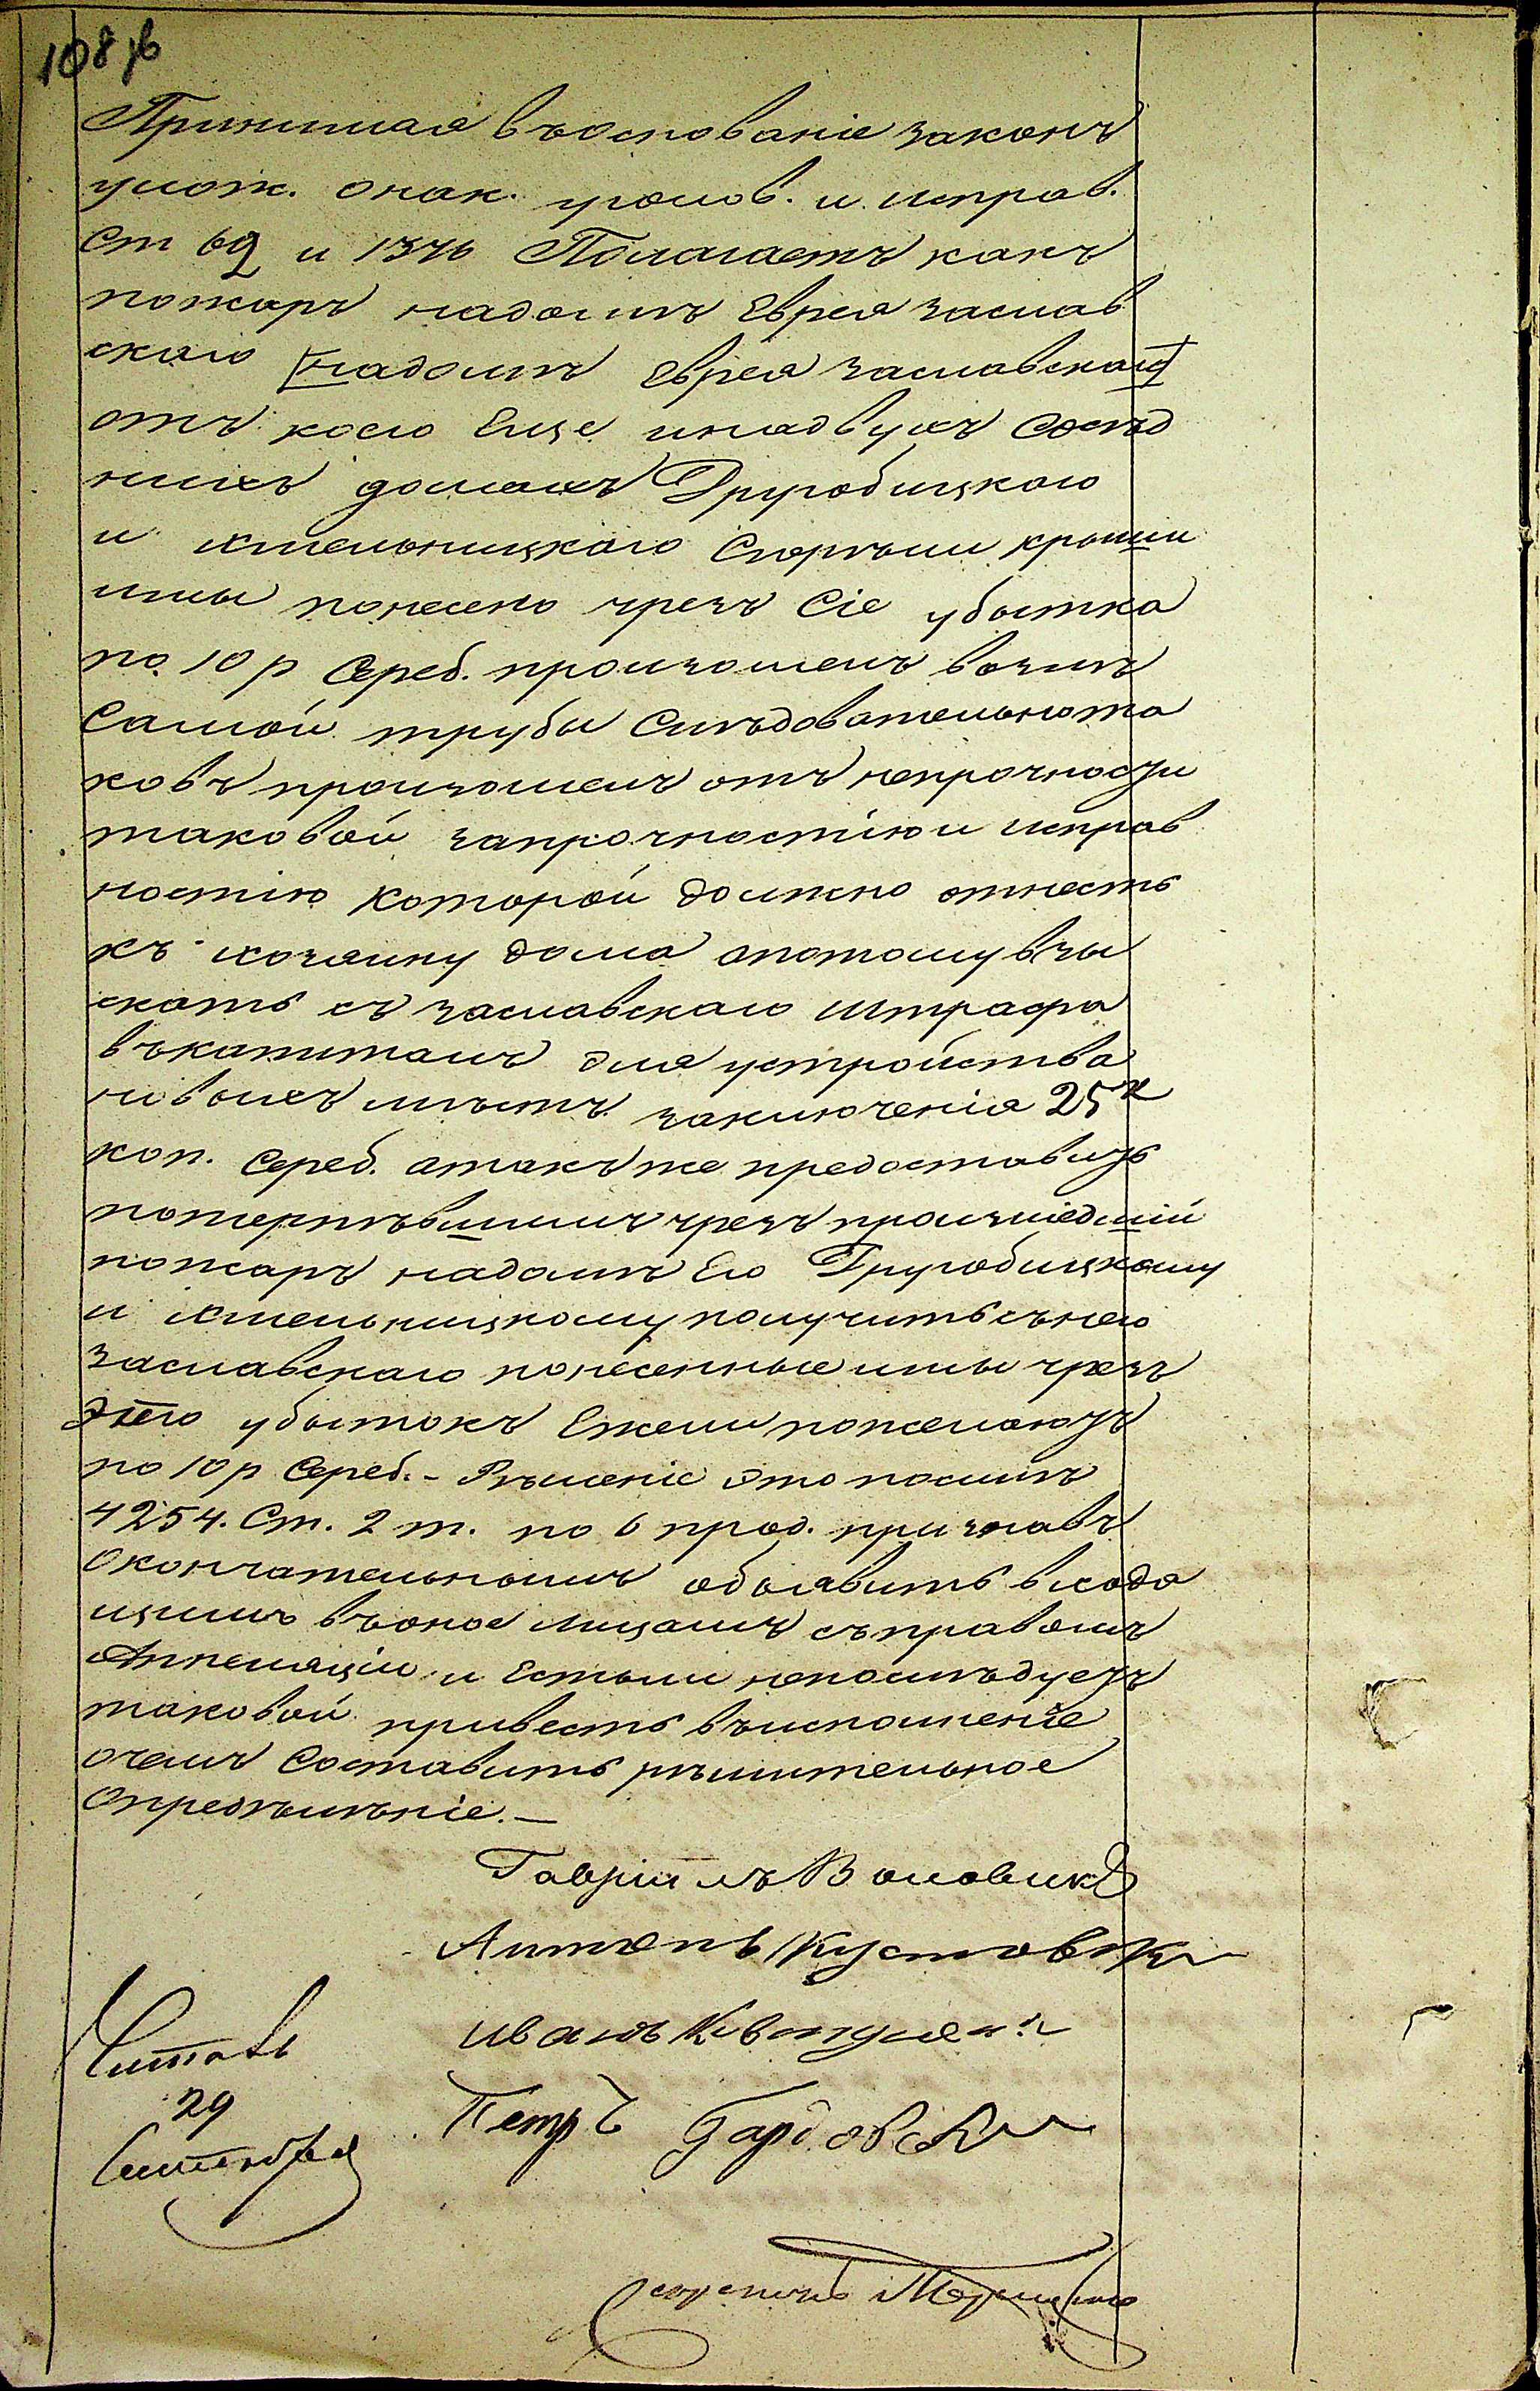 108 об
Принимая въоснованіе законъ
улож. онак. уголов. и исправ.
Ст 62 и 1376 Полагаетъ какъ
пожаръ надомъ Еврея заслав
скаго надомъ Еврея заславскаго
отъ косго Еще инадвухъ Сосѣд
нихъ домахъ Другобицкаго
и хмельницкаго Сгорѣли крыши
ими понесено чрезъ Сіе убытка
по 10 р Сереб. произошелъ возлѣ
Самой трубы Слѣдовательнота
ковъ произошелъ отъ непрочности
таковой запрочностію и исправ
ностію которой должно отнесть
къ хозяину дома апотому взы
скать съ заславскаго штрафа
въкапиталъ для устройства
новыхъ мѣстъ заключенія 25 к
коп. Сереб. атакъже предоставить
потерпѣвшимъ чрезъ произшедшій
пожаръ надомѣ Его Другобицкому
и хмельницкому получить сънего
заславскаго понесенные ими чрезъ
этого убытокъ Ежели пожелаютъ
по 10 р Сереб. - Рѣшеніе это посилѣ
4254. Ст. 2 т. по 6 прод. признавъ
Окончательнымъ объявить входя
щимъ въоное лицамъ съправомъ
Аппеляціи и Естьли непослѣдуетъ
таковой привесть въисполненіе
очемъ Составить рѣшительное
Опредѣлѣніе. -
Гавріилъ Воловикъ
Антонъ
Иванъ
Читалъ
29
Сентября
Петръ
Секретарь